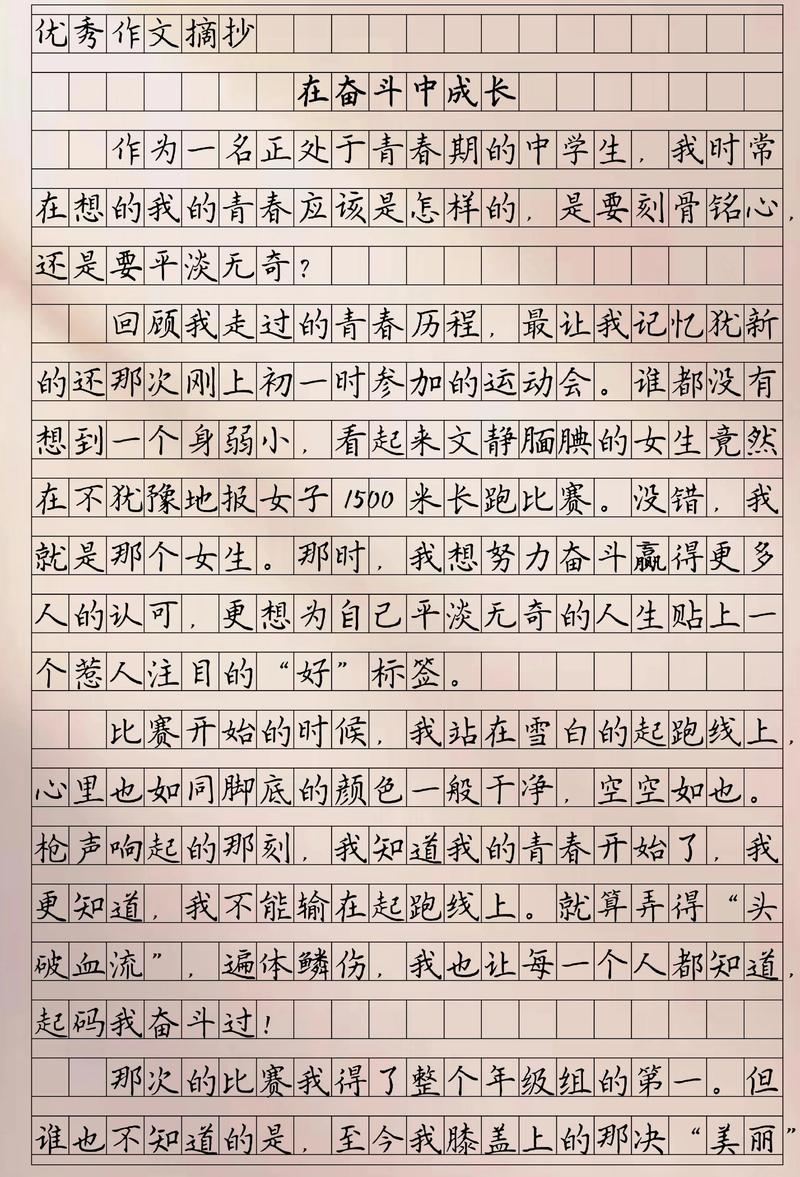 优秀作文摘抄
在奋斗中成长
作为一名正处于青春期的中学生，我时常
在想的我的青春应该是怎样的，是要刻骨铭心，
还是要平淡无奇？
回顾我走过的青春历程，最让我记忆犹新
的还那次刚上初一时参加的运动会。谁都没有
想到一个身弱小，看起来文静腼腆的女生竟然
在不犹豫地报女子1500米长跑比赛。没错，我
就是那个女生。那时，我想努力奋斗赢得更多
人的认可，更想为自己平淡无奇的人生贴上一
个惹人注目的“好”标签。
比赛开始的时候，我站在雪白的起跑线上，
心里也如同脚底的颜色一般干净，空空如也。
枪声响起的那刻，我知道我的青春开始了，我
更知道，我不能输在起跑线上。就算弄得“头
破血流”，遍体鳞伤，我也让每一个人都知道，
起码我奋斗过！
那次的比赛我得了整个年级组的第一。但
谁也不知道的是，至今我膝盖上的那决“美丽”